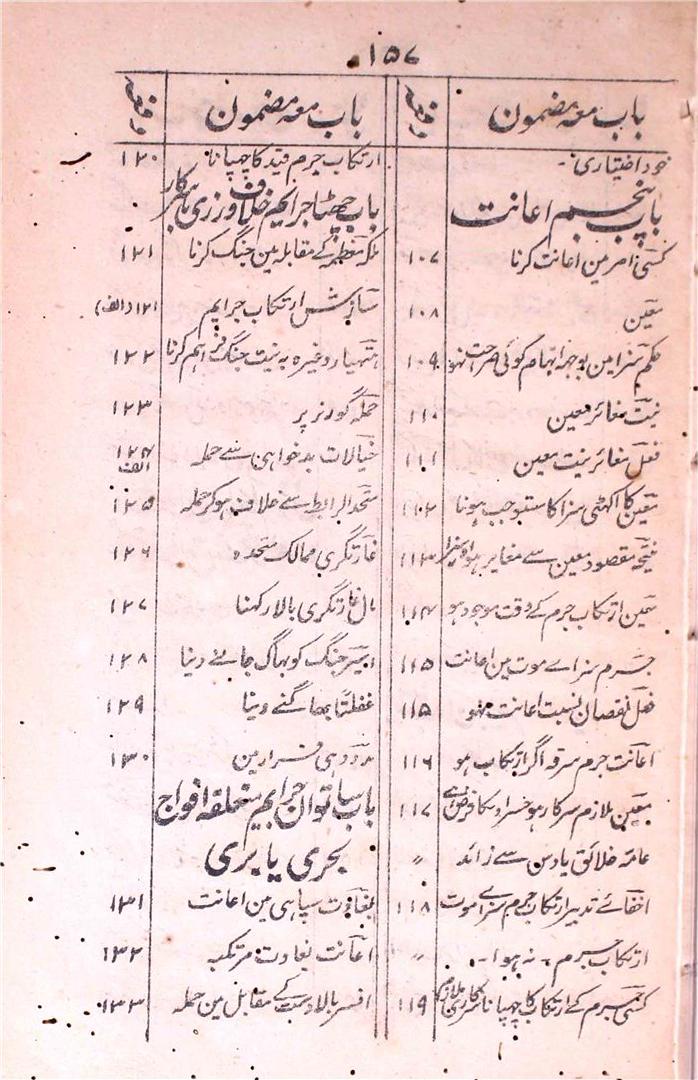 ۱۵۷
باب معہ مضمون دفعہ
خود اختیاری۔
باب پنجم اعانت
کسی امر مین اعانت کرنا ۱۰۷
معین ۱۰۸
حکم سزا مین بوجہ ابہام کوئی صراحت نہو ۱۰۹
نیت مغائر معین ۱۱۰
فعل مغائر نیت معین ۱۱۱
معین کا اکہٹی سزا کا مستوجب ہونا ۱۱۲
نتیجہ مقصود معین سے مغایر ہو ۱۱۳
معین ارتکاب جرم کے وقت موجود ہو ۱۱۴
جرم سزاے موت مین اعانت ۱۱۵
فعل نقصان نسبت اعانت نہو ۱۱۵
اعانت جرم سرقہ اگر ارتکاب ہو ۱۱۶
معین ملازم سرکار ہو ۱۱۷
عامہ خلائق یا دس سے زائد ״
اخفائے تدبیر ارتکاب جرم سزاے موت ۱۱۸
ارتکاب جرم ۔ نہ ہوا ۔ ״
کسی جرم کے ارتکاب کا چہپانا سرکاری ملازم کا ۱۱۹
باب معہ مضمون دفعہ
ارتکاب جرم قید کا چہپانا ۱۲۰
باب چھٹا جرایم خلاف ورزی با سرکار
ملکہ معظمہ کے مقابلہ مین جنگ کرنا ۱۲۱
سازش ارتکاب جرایم ۱۲۱(الف)
ہتھیار وغیرہ بہ نیت جنگ فراہم کرنا ۱۲۲
حملہ گورنر پر ۱۲۳
خیالات بدخواہی سے حملہ ۱۲۴ الف
متحد الرابطہ سے خلاف ہوکر حملہ ۱۲۵
غارتگری ممالک متحدہ ۱۲۶
مال غارتگری بالا رکہنا ۱۲۷
اسیر جنگ کو بہاگ جانے دینا ۱۲۸
غفلتاً بھاگنے دینا ۱۲۹
مدد دہی فرار مین ۱۳۰
باب ساتوان جرایم متعلقہ افواج
بحری یا بری
بغاوت سپاہی مین اعانت ۱۳۱
اعانت بغاوت مرتکبہ ۱۳۲
افسر بالادست کے مقابل مین حملہ ۱۳۳